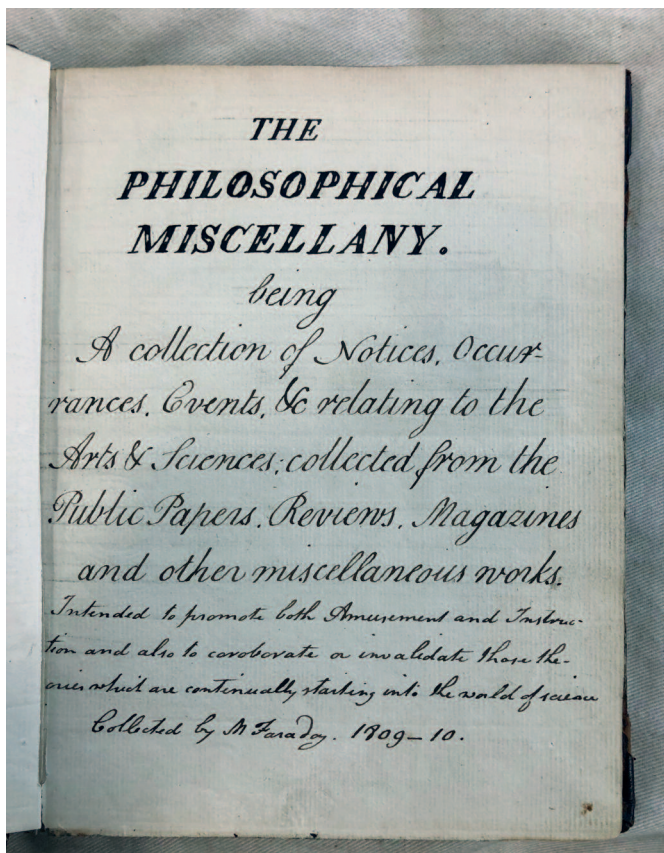 THE
PHILOSOPHICAL
MISCELLANY.
being
A collection of Notices, Occur-
rances, Events, &c relating to the
Arts & Sciences; collected from the
Public Papers, Reviews, Magazines
and other miscellaneous works.
Intended to promote both Amusement and Instruc-
tion and also to corroborate or invalidate those the-
ories which are continually starting into the world of science
Collected by M Faraday. 1809–10.